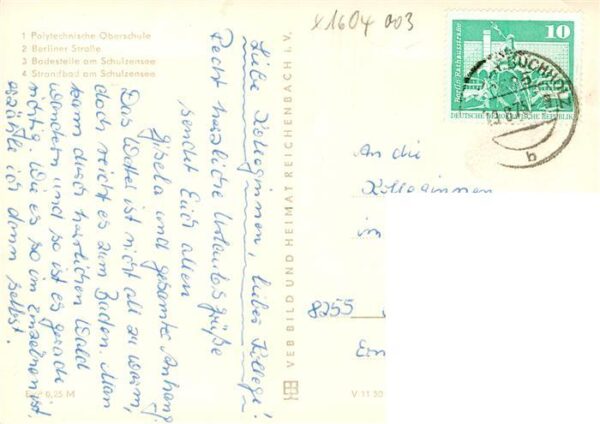 x 1604 003
1 Polytechnische Oberschule
2 Berliner Straße
3 Badestelle am Schulzensee
4 Strandbad am Schulzensee
Liebe Kolleginnen, lieber Kollege!
Recht herzliche Urlaubsgrüße
sendet Euch allen
Gisela und gesamte Anhang.
Das Wetter ist nicht all zu warm,
doch reicht es zum Baden. Man
kann durch herrlichen Wald
wandern und so ist es gerade
richtig. Wie es so im einzelnen ist,
erzähle ich dann selbst.
0,25 M
VEB BILD UND HEIMAT REICHENBACH I. V.
V 11 50
10
Berlin, Rathausstraße
DEUTSCHE DEMOKRATISCHE REPUBLIK
BUCHHOLZ
b
An die
Kolleginnen
8255